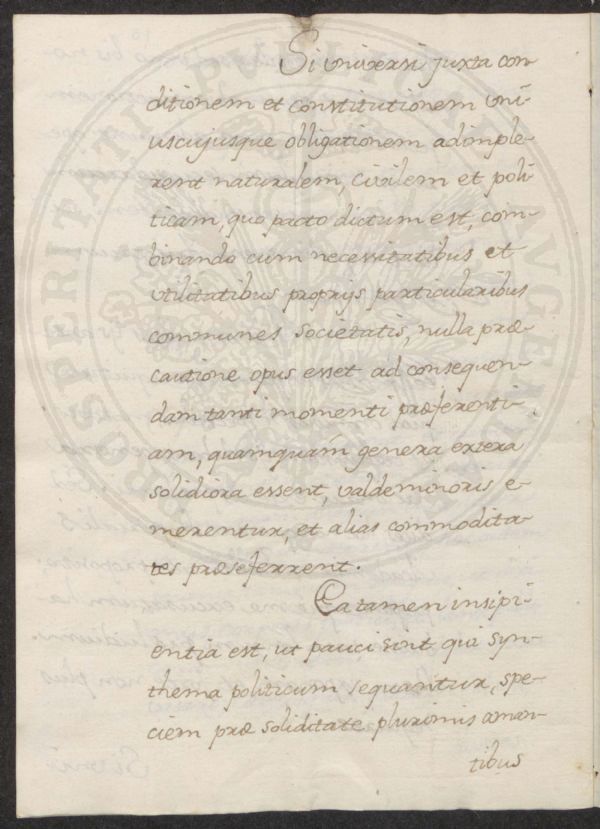 Si universi juxta con-
ditionem et constitutionem uni-
uscujusque obligationem adimple-
rent naturalem, civilem et poli-
ticam, quo pacto dictum est, com-
binando cum necessitatibus et
utilitatibus proprijs particularibus
communes societatis, nulla præ-
cautione opus esset ad consequen-
dam tanti momenti præferenti-
am, quamquam genera extera
solidiora essent, valde minoris e-
merentur, et alias commodita-
tes præseferrent.
Ea tamen insipi-
entia est, ut pauci sint, qui syn-
thema politicum sequantur, spe-
ciem præ soliditate plurimis aman-
tibus
PROSPERITATI PUBLICAE AUGENDAE